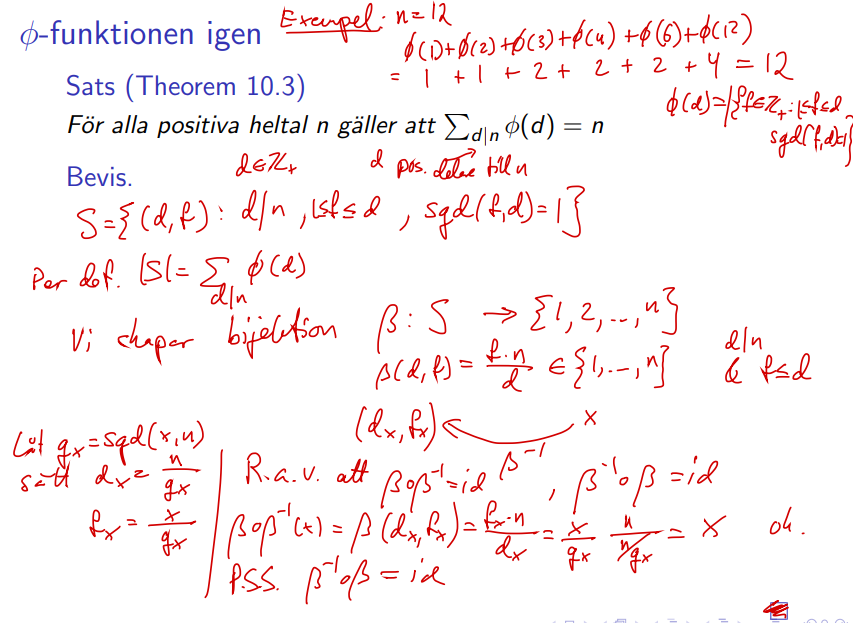 ϕ-funktionen igen
Exempel: n=12
ϕ(1)+ϕ(2)+ϕ(3)+ϕ(4)+ϕ(6)+ϕ(12)
= 1 + 1 + 2 + 2 + 2 + 4 = 12
Sats (Theorem 10.3)
ϕ(d)=|{f∈ℤ₊: 1≤f≤d
sgd(f,d)=1}|
För alla positiva heltal n gäller att ∑_{d|n} ϕ(d) = n
d∈ℤ₊ d pos. delare till n
Bevis.
S={(d,f): d|n, 1≤f≤d, sgd(f,d)=1}
Per def. |S|= ∑_{d|n} ϕ(d)
Vi skapar bijektion β: S → {1,2,...,n}
β(d,f) = f·n/d ∈ {1,...,n}
d|n
& f≤d
(dₓ,fₓ) ← x
β⁻¹
Låt gₓ=sgd(x,n)
sätt dₓ= n/gₓ
fₓ = x/gₓ
R.a.v. att β∘β⁻¹=id, β⁻¹∘β=id
β∘β⁻¹(x) = β(dₓ,fₓ) = fₓ·n/dₓ = x/gₓ n/(n/gₓ) = x ok.
P.S.S. β⁻¹∘β = id